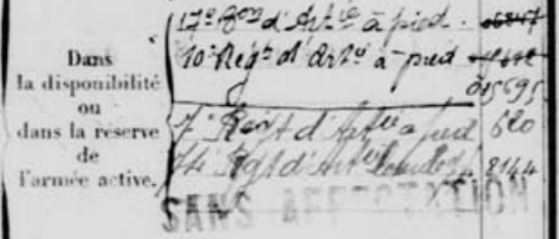 Dans
la disponibilité
ou
dans la réserve
de
l'armée active.
17e Bon d'Artie à pied.
10e Régt d'Artie à pied
015695
7e Regt d'Artie à pied 620
Rgt d'Artie 8144
SANS AFFECTATION